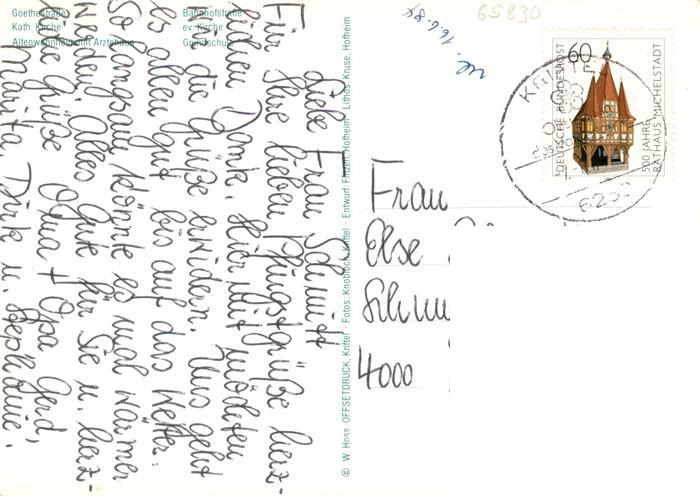 Goethestraße
Kath. Kirche
Altenwohnheim mit Arztehaus
Bahnhofstraße
ev. Kirche
Grundschule
16.6.84
65830
Liebe Frau Schmitt
Für Ihre lieben Pfingstgrüße herz-
lichen Dank. Hiermit möchten
wir die Grüße erwidern. Uns geht
es allen gut bis auf das Wetter.
So langsam könnte es mal wärmer
werden. Alles Gute für Sie u. herz-
liche Grüße Oma + Opa Gerd,
Marita, Dirk u. Stephanie.
© W. Hoss OFFSETDRUCK, Kriftel · Fotos: Knoblock, Kriftel · Entwurf: Finzen, Hofheim · Lithos: Kruse, Hofheim
60
DEUTSCHE BUNDESPOST
500 JAHRE
RATHAUS MICHELSTADT
6239
Frau
Else
4000